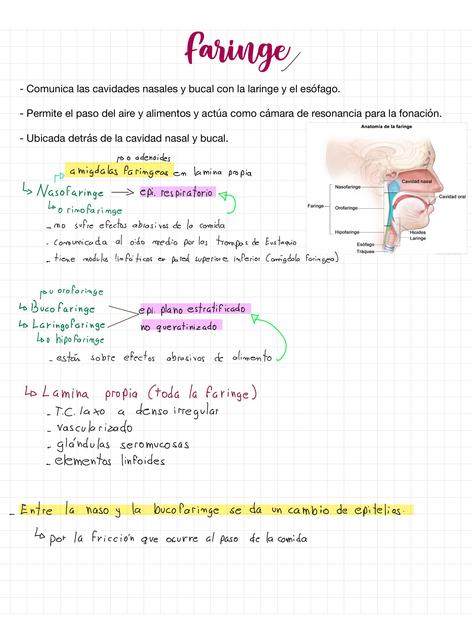 faringe
- Comunica las cavidades nasales y bucal con la laringe y el esófago.
- Permite el paso del aire y alimentos y actúa como cámara de resonancia para la fonación.
- Ubicada detrás de la cavidad nasal y bucal.
Anatomía de la faringe
Cavidad nasal
Nasofaringe
Cavidad oral
Faringe
Orofaringe
Hipofaringe
Hioides
Laringe
Esófago
Tráquea
o adenoides
amigdalas faringeas en lamina propia
Nasofaringe → epi. respiratorio
o rinofaringe
- no sufre efectos abrasivos de la comida
- comunicada al oido medio por las trompas de Eustaquio
- tiene nodulos linfoticos en pared superiore inferior (amigdala faringea)
u orofaringe
Bucofaringe epi. plano estratificado
Laringofaringe no queratinizado
o hipofaringe
- están sobre efectos abrasivos de alimento
Lamina propia (toda la faringe)
- T.C. laxo a denso irregular
- vascularizado
- glándulas seromucosas
- elementos linfoides
- Entre la naso y la bucofaringe se da un cambio de epitelios.
por la fricción que ocurre al paso de la comida